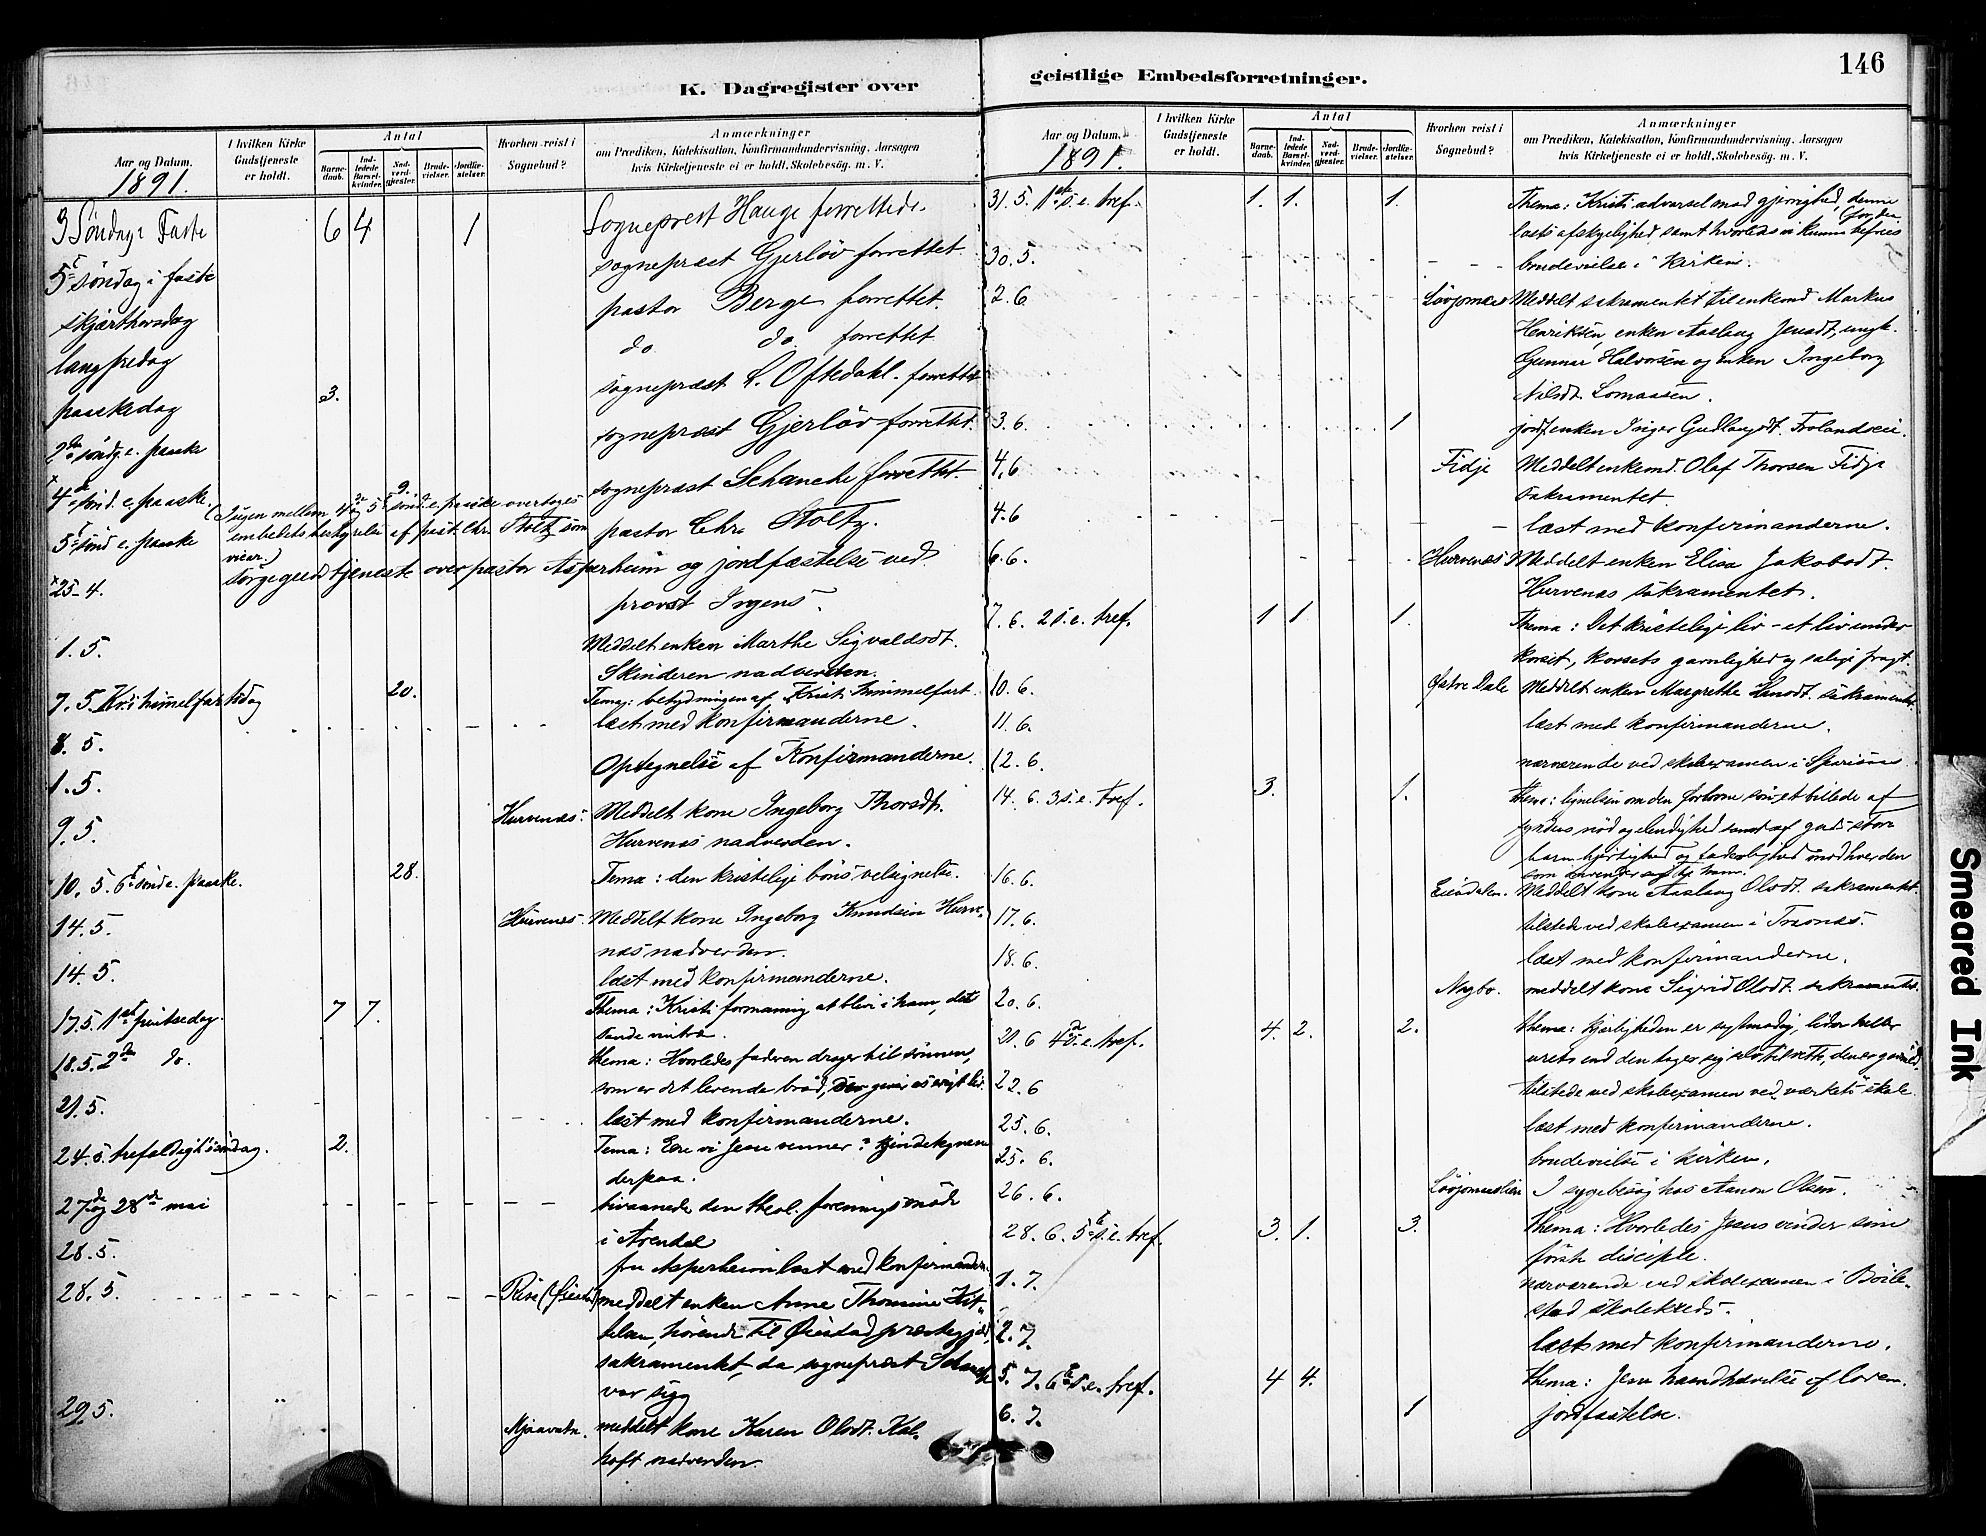 146
K. Dagregister over geistlige Embedsforretninger.
Aar og Datum. 1891.
I hvilken Kirke Gudstjeneste er holdt.
Antal
Barnedaab. Indledede Barselkvinder. Nadverdgjester. Brudevielser. Jordfæstelser.
Hvorhen reist i Sognebud?
Anmærkninger
om Prædiken, Katekisation, Konfirmandundervisning. Aarsagen
hvis Kirketjeneste ei er holdt, Skolebesøg. m. V.
3 Søndag i Faste 6 4 1 Sogneprest Hauge forrettede.
5t søndag i faste sognepræst Gjerløv forrettet.
skjærthorsdag pastor Berge forrettet.
langfredag do do forrettet
paaskedag 3. sognepræst L. Oftedahl forrettet
2den søndg. e. paaske sognepræst Gjerløv forrettet.
4de sønd. e. paaske. 9. sognepræst Schanche forrettet.
(Ingen mellem 4de og 5t sønd. e. paaske overtoges
embedets bestyrelse af past. Chr. Stoltz som
vicar.)
5t sønd e. paaske pastor Chr. Stoltz.
25-4. sørgegudstjeneste over pastor Asperheim og jordfæstelse ved
provst Irgens.
1. 5. Meddelt enken Marthe Sigvaldsdt.
Skinderen nadverden.
7. 5. Kr. himmelfartsdag 20. Tema: betydningen af Kristi himmelfart.
8. 5. læst med konfirmanderne.
1. 5. Optegnelse af Konfirmanderne.
9. 5 Hurvenæs. Meddelt kone Ingeborg Thorsdt.
Hurvenæs nadverden.
10. 5. 6t sønd e. paaske. 28. Tema: den kristelige bøns velsignelse.
14. 5. Hurvenæs. Meddelt kone Ingeborg Knudsen Hurve-
næs nadverden.
14. 5. læst med konfirmanderne.
17. 5. 1st pintsedag. 7 7. Thema: Kristi formaning at blive i ham, det
sande vintræ.
18. 5. 2den do. thema: Hvorledes faderen drager til sønnen,
som er det levende brød, der giver os evigt liv.
21. 5. læst med konfirmanderne.
24. 5. trefoldigh. søndag. 2. Tema: Ere vi Jesu venner? kjendetegnene
derpaa.
27de og 28de mai bivaanede den theol. forenings møde
i Arendal
28. 5. fru Asperheim læst med konfirmander.
28. 5. Rise (Øiestad) meddelt enken Anne Thomine Kit-
telsen, hørende til Øiestad præstegjæld,
sakramentet, da sognepræst Schanche
var syg
29 5. Mjaavatn. meddelt kone Karen Olsdt. Kal-
hoft nadverden.
Aar og Datum. 1891.
I hvilken Kirke Gudstjeneste er holdt.
Antal
Barnedaab. Indledede Barselkvinder. Nadverdgjester. Brudevielser. Jordfæstelser.
Hvorhen reist i Sognebud?
Anmærkninger
om Prædiken, Katekisation, Konfirmandundervisning. Aarsagen
hvis Kirketjeneste ei er holdt, Skolebesøg. m. V.
31. 5. 1ste s. e. tref. 1. 1. 1. Thema: Kristi advarsel mod gjerrighed, denne
lasts afskyelighed samt hvorledes vi kunne befries
30. 5. brudevielse i kirken.
2. 6 Meddelt sakramentet til enkemd Markus
Henriksen enken Aaslaug Jensdt, ungk.
Gunnar Halvorsen og enken Ingeborg
Nilsdt. Lomaasen.
3. 6. 1 jordf. enken Inger Gudlaugsdt. Frolandseie.
4. 6 Fidje Meddelt enkemd. Olaf Thorsen Fidje
sakramentet.
4. 6 læst med konfirmanderne.
6. 6. Hurvenæs Meddelt enken Elisa Jakobsdt.
Hurvenæs sakramentet.
7. 6. 2 s. e. tref. 1 1 1. Thema: Det kristelige liv - et liv under
korset, korsets gavnlighed og salige frugt.
10. 6. Østre Dale Meddelt enken Margrethe Hansdt. sakramentet.
11. 6. læst med konfirmanderne.
12. 6. nærværende ved skoleexamen i
14. 6. 3 s. e. tref. 3. 1. Thema: lignelsen om den forlorne søn et billede af
syndens nød og elendighed samt af guds store
barmhjertighed og faderlighed mod hver den
som omvender sig til ham.
16. 6. Eiendalen. Meddelt kone Aaslaug Olsdt. sakramentet.
17. 6. tilstede ved skoleexamen i Trænæs.
18. 6. læst med konfirmanderne.
20. 6. Næsbo. meddelt kone Sigrid Olsdt. sakramentet.
21. 6 4de s. e. tref. 4. 2. 2. thema: kjærligheden er sagtmodig, lider heller
uret end den tager sig selv til rette,
22. 6 tilstede ved skoleexamen ved værkets skole
25. 6. læst med konfirmanderne.
25. 6. brudevielse i kirken.
26. 6. I sygebesøg hos Aanon Olsen.
28. 6. 5te s. e. tref. 3. 1. 3. thema: Hvorledes Jesus vinder sine
første disciple.
1. 7. nærværende ved skoleexamen i Bøile-
stad skolekreds.
2. 7. læst med konfirmanderne.
5. 7. 6te s. e. tref. 4 4. thema: Jesu haandhævelse af loven.
6. 7. 1 jordfæstelse.
Smeared Ink